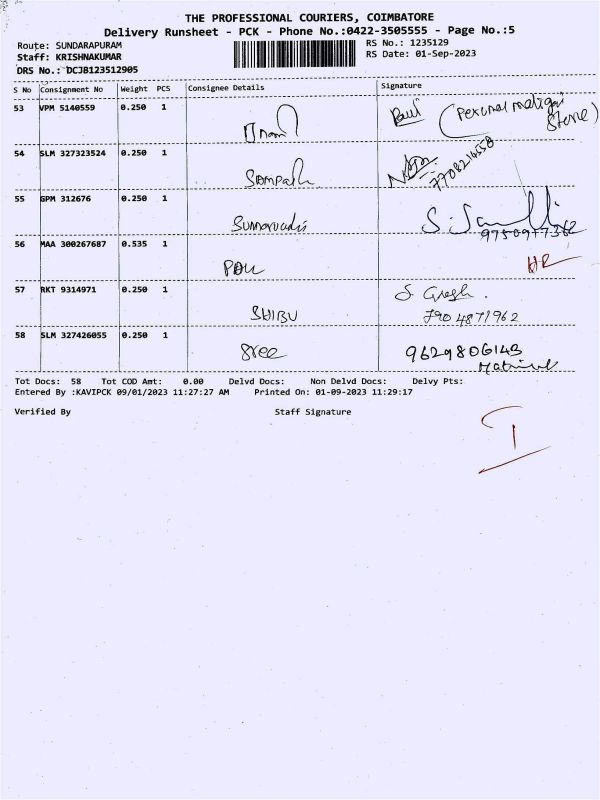 THE PROFESSIONAL COURIERS, COIMBATORE
Delivery Runsheet - PCK - Phone No.:0422-3505555 - Page No.:5
Route: SUNDARAPURAM
RS No.: 1235129
Staff: KRISHNAKUMAR
RS Date: 01-Sep-2023
DRS No.: DCJB123512905
S No Consignment No Weight PCS Consignee Details Signature
53 VPM 5140559 0.250 1
54 SLM 327323524 0.250 1
7708214558
Sampath
55 GPM 312676 0.250 1
9750977362
56 MAA 300267687 0.535 1
HR
57 RKT 9314971 0.250 1
SHIBU
7904871962
58 SLM 327426055 0.250 1
Sree 9629806143
Tot Docs: 58 Tot COD Amt: 0.00 Delvd Docs: Non Delvd Docs: Delvy Pts:
Entered By :KAVIPCK 09/01/2023 11:27:27 AM Printed On: 01-09-2023 11:29:17
Verified By Staff Signature